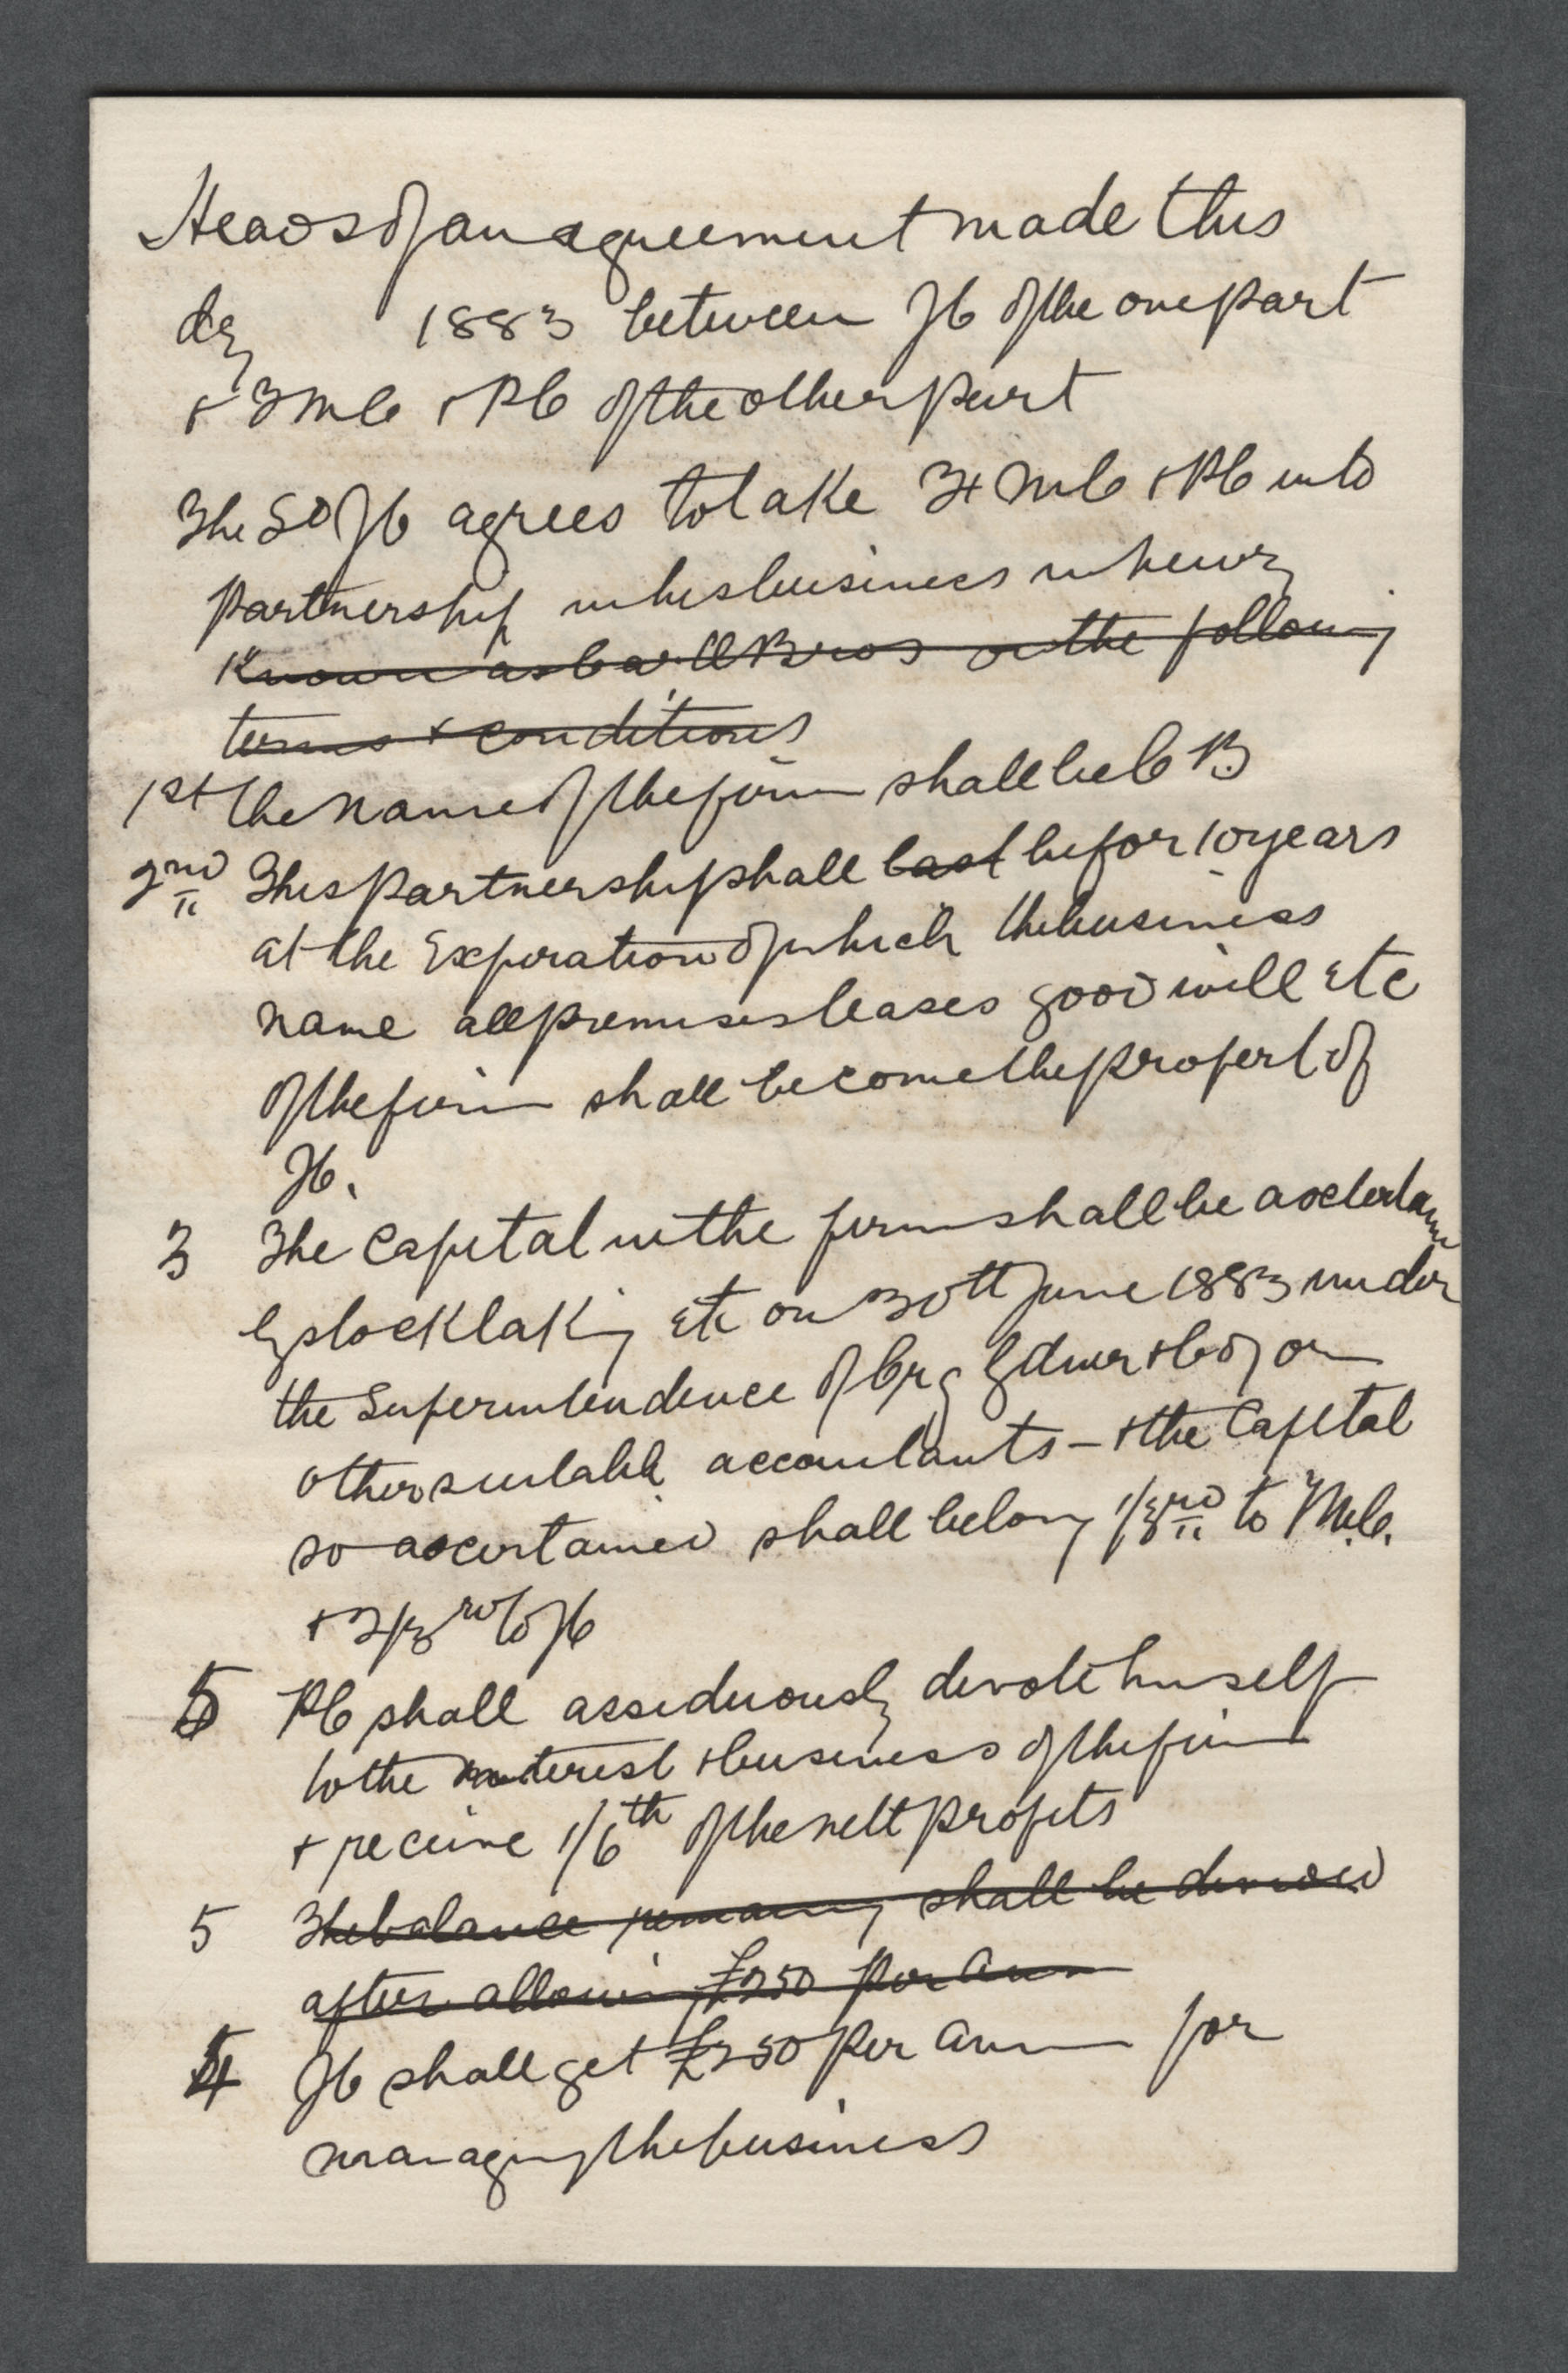 Heads of an agreement made this
day 1883 between JC of the one part
+ MC + PC of the other part
The Sd JC agrees to take MC + PC into
partnership in his business in Newry
Known as Carroll Bros on the following
terms + conditions
1st the name of the firm shall be C B
2nd This partnership shall last be for 10 years
at the Expiration of which the business
name all premises leases good will etc
of the firm shall become the propert of
JC.
3 The Capital in the firm shall be ascertain
by stocktaking etc on 30th June 1883 under
the Superintendence of Craig Gardner & Co or
other suitable accountants – + the Capital
so ascertained shall belong 1/3rd to MC.
+ 2/3rd to JC
5 PC shall assiduously devote himself
to the interest + business of the firm
+ receive 1/6th of the nett profits
5 The balance remaining shall be divided
after allowing £250 per ann
4 JC shall get £250 per ann for
managing the business